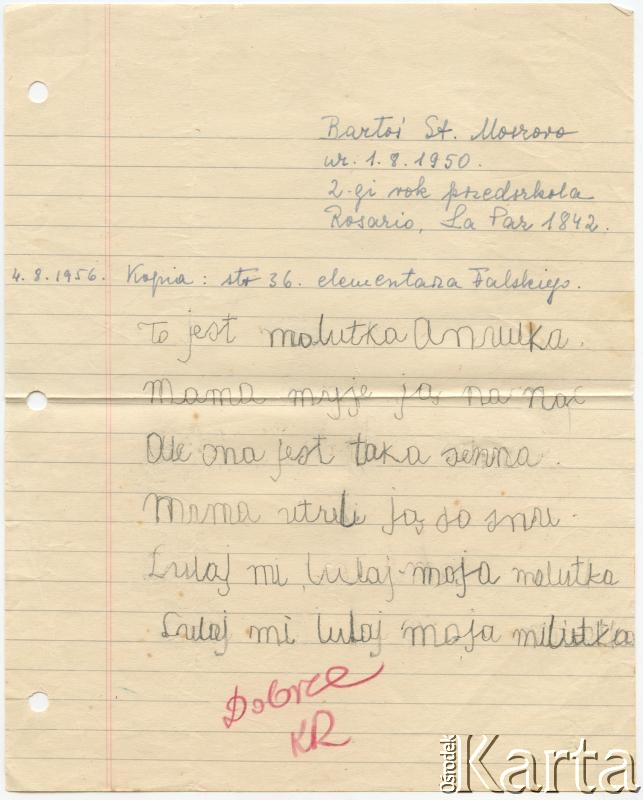 Bartoś St. Moszoro
ur. 1.8.1950.
2-gi rok przedszkola
Rosario, La Paz 1842.
4.8.1956. Kopia: str 36. elementarza Falskiego.
To jest malutka Anulka.
Mama myje ją na noc
Ale ona jest taka senna.
Mama utuli ją do snu.
Lulaj mi, lulaj moja malutka
Lulaj mi lulaj moja milutka
Dobrze
KR
Ośrodek
Karta